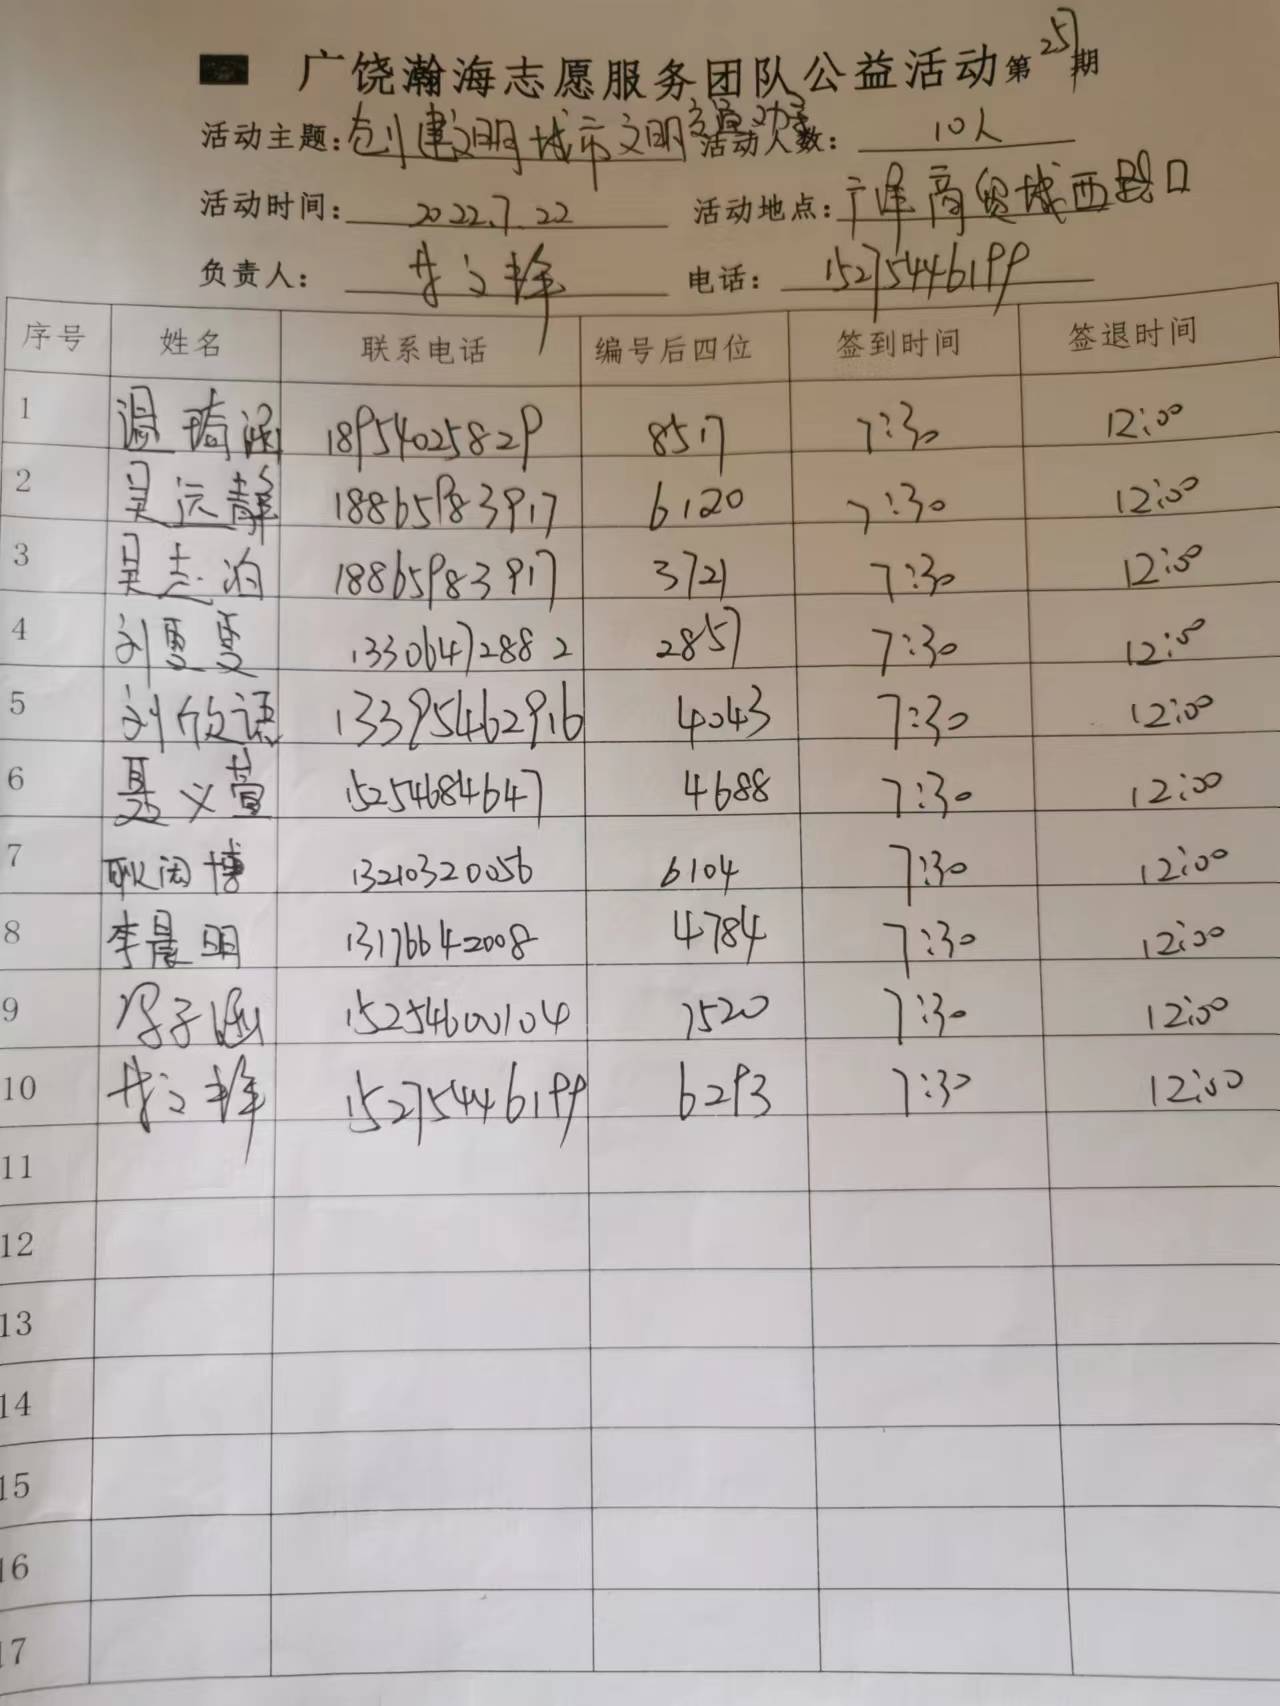 广饶瀚海志愿服务团队公益活动第257期
活动主题：创建文明城市文明交通劝导 活动人数：10人
活动时间：2022.7.22 活动地点：广泽商贸城西路口
负责人： 电话：15275446199
序号 姓名 联系电话 编号后四位 签到时间 签退时间
1 温琦涵 18954025829 8517 7:30 12:00
2 吴远静 18865983917 6120 7:30 12:00
3 吴志鸿 18865983917 3721 7:30 12:00
4 刘夏夏 13306472882 2857 7:30 12:00
5 刘欣语 13395462916 4043 7:30 12:00
6 聂义萱 15254684647 4688 7:30 12:00
7 耿闳博 13210320056 6104 7:30 12:00
8 李晨明 13176642008 4784 7:30 12:00
9 子涵 15254600104 7520 7:30 12:00
10 15275446199 6293 7:30 12:00
11
12
13
14
15
16
17